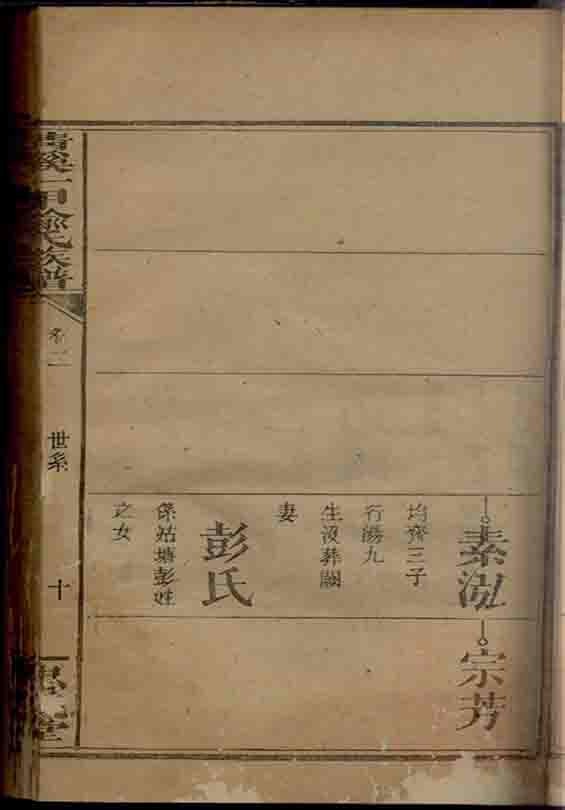 素泓
均齊三子
行湯九
生沒葬闕
妻
彭氏
係姑塘彭姓
之女
宗芳
一甲俞氏族譜
卷二
世系
十
堂